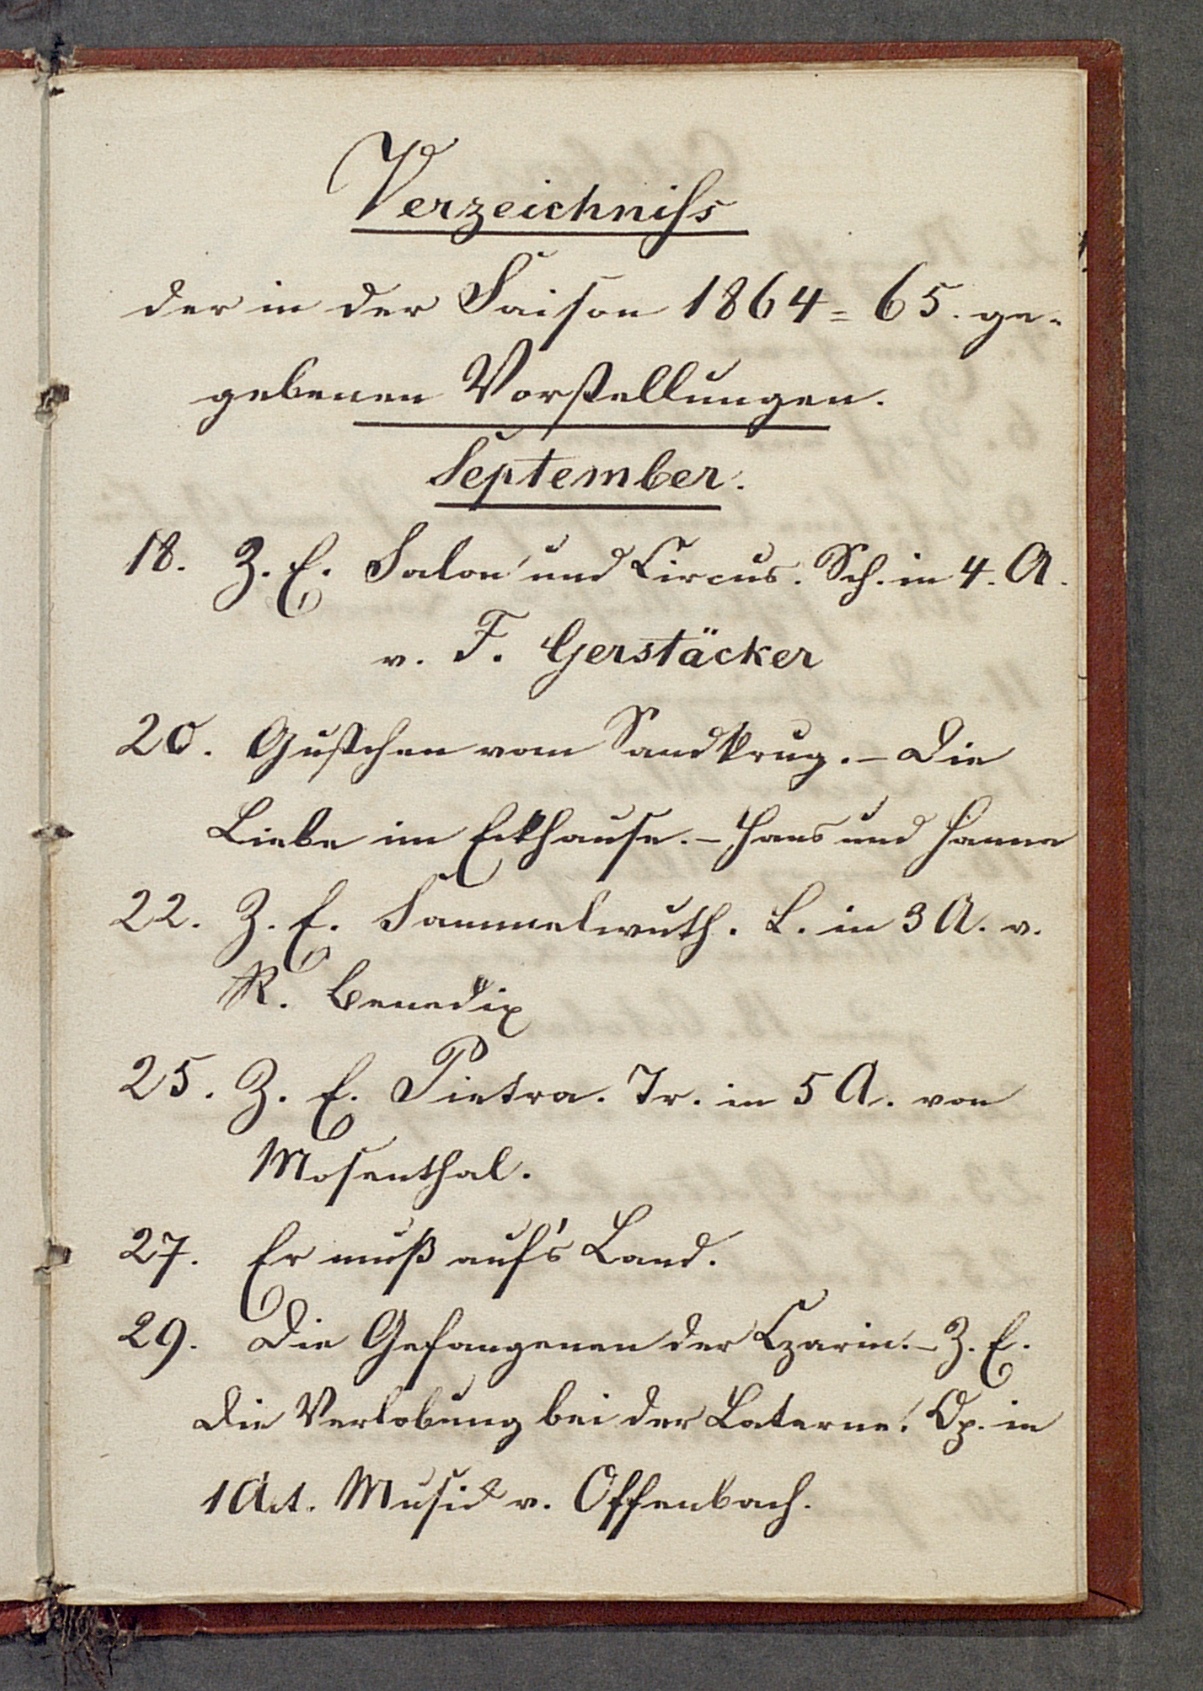 Verzeichniſs
der in der Saison 1864=65. ge-
gebenen Vorstellungen.
September.
18. Z. E. Salon und Circus. Sch. in 4. A.
v. F. Gerstäcker
20. Gustchen vom Sandkrug. – Die
Liebe im Eckhause. – Hans und Hanne
22. Z. E. Sammelwuth. L. in 3 A. v.
R. Benedix
25. Z. E. Pietra. Tr. in 5 A. von
Mosenthal.
27. Er muß auf's Land.
29. Die Gefangenen der Czarin. – Z. E.
Die Verlobung bei der Laterne. Op. in
1 Act. Musik v. Offenbach.